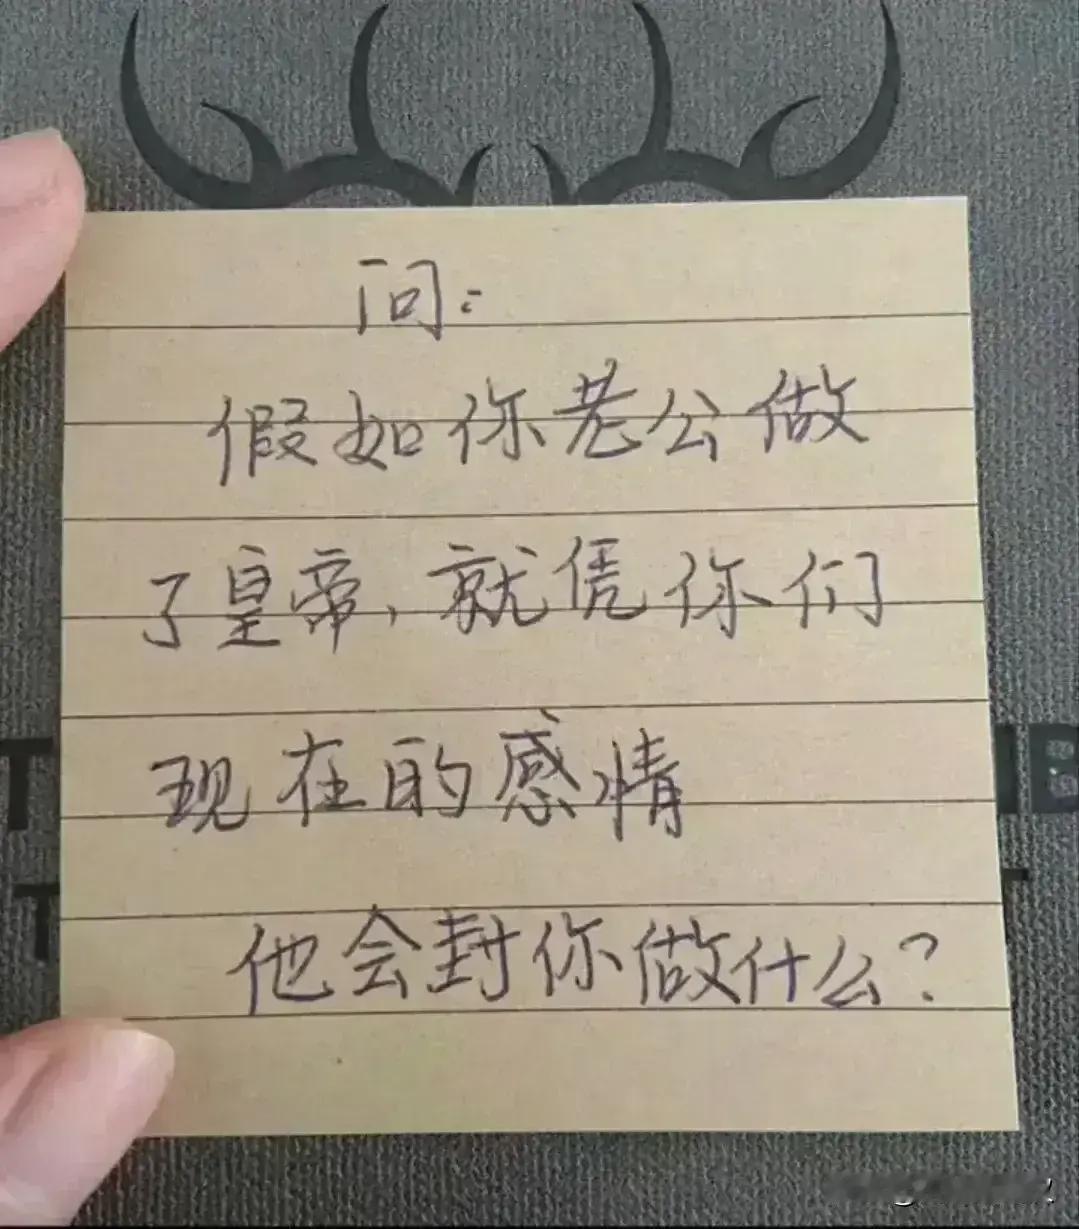 问:
假如你老公做
了皇帝,就凭你们
现在的感情
他会封你做什么?
T
B
T
T